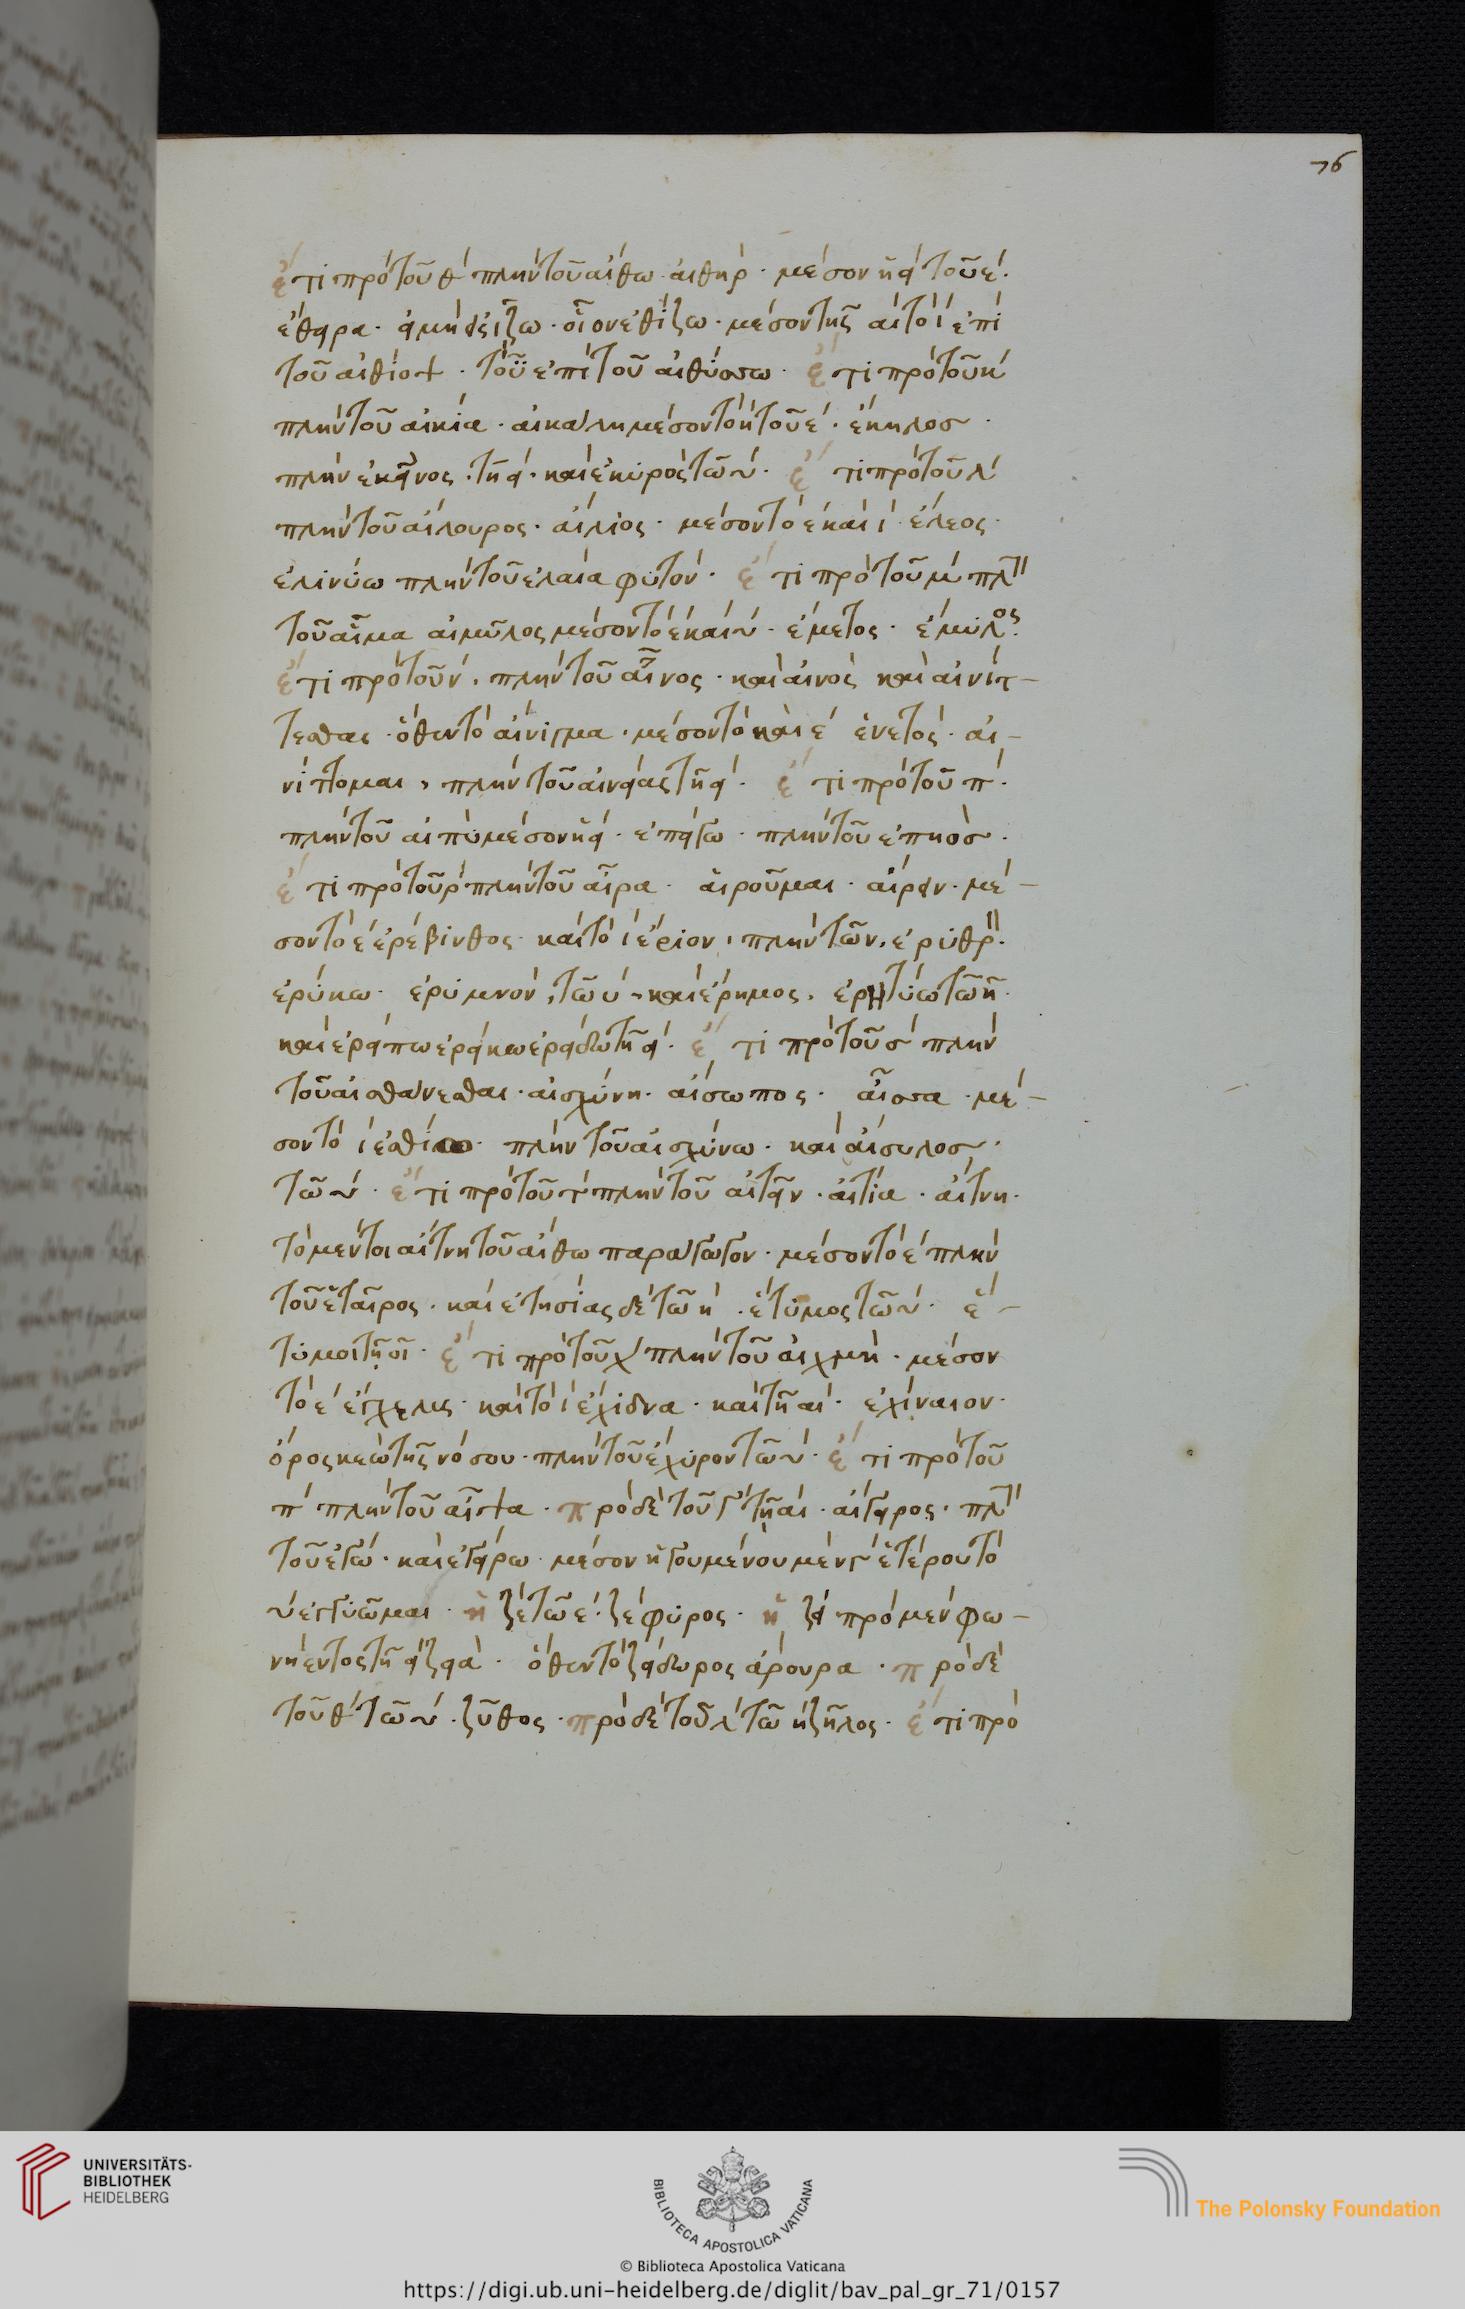 76
ἔτι πρὸ τοῦ θ πλὴν τοῦ αἴθω αἰθήρ · μέσον ἢ εἰ τοῦ ε ·
ἔθειρα · εἰ μὴ εἴξω · οἷον ἐθίζω · μέσον τῆς αι τὸ ι ἐπὶ
τοῦ αἰθίοψ · τὸ ϋ ἐπὶ τοῦ αἰθύσσω · ἔτι πρὸ τοῦ κ
πλὴν τοῦ αἰκία · αἰκάλη μέσον τὸ η τοῦ ε · ἔκηλοσ ·
πλὴν ἐκεῖνος · τῇ ει · καὶ ἑκυρὸς τῷ υ · ἔτι πρὸ τοῦ λ
πλὴν τοῦ αἴλουρος · αἴλιος · μέσον τὸ ε καὶ ι · ἔλεος ·
ἐλινύω πλὴν τοῦ ἐλαία φυτόν · ἔτι πρὸ τοῦ μ πλ
τοῦ αἷμα αἱμύλος μέσον τὸ ε καὶ υ · ἔμετος · ἐμύλος ·
ἔτι πρὸ τοῦ ν · πλὴν τοῦ αἶνος · καὶ αἰνὸς καὶ αἰνίτ-
τεσθαι · ὅθεν τὸ αἴνιγμα · μέσον τὸ καὶ ε ἐνετός · αἰ-
νίττομαι, πλὴν τοῦ αἰνείας τῇ ει · ἔτι πρὸ τοῦ π ·
πλὴν τοῦ αἰπὺ μέσον ἢ ει · ἐπείγω · πλὴν τοῦ ἐπηὸσ ·
ἔτι πρὸ τοῦ ρ πλὴν τοῦ αἶρα · αἱροῦμαι · αἴρειν · μέ-
σον τὸ ε ἐρέβινθος καὶ τὸ ι ἔριον, πλὴν τῶν, ἐρυθρ ·
ἐρύκω · ἐρυμνόν, τῷ υ · καὶ ἔρημος, ἐρητύω τῷ η ·
καὶ ἐρείπω ἐρείκω ἐρείδω τῇ ει · ἔτι πρὸ τοῦ σ πλὴν
τοῦ αἰσθάνεσθαι · αἰσχύνη · αἴσωπος · αἶσσα · μέ-
σον τὸ ι ἐσθίω · πλὴν τοῦ αἰσχύνω · καὶ αἴσυλοσ
τῷ υ · ἔτι πρὸ τοῦ τ πλὴν τοῦ αἰτεῖν · αἰτία · αἴτνη ·
τὸ μέντοι αἴτνη τοῦ αἴθω παράγωγον · μέσον τὸ ε πλὴν
τοῦ ἑταῖρος · καὶ ἐτησίας δὲ τῷ η · ἔτυμος τῷ υ · ἔ-
τυμοι τῇ οι · ἔτι πρὸ τοῦ χ πλὴν τοῦ αἰχμή · μέσον
τὸ ε ἔγχελις · καὶ τὸ ι ἔχιδνα · καὶ τῇ αι · ἐχίναιον ·
ὄρος κεὼ τῆς νόσου · πλὴν τοῦ ἐχυρὸν τῷ υ · ἔτι πρὸ τοῦ
π πλὴν τοῦ αἶψα · πρὸ δὲ τοῦ γ τῇ αι · αἴγειρος · πλ
τοῦ ἐγώ · καὶ ἐγείρω · μέσον ἡγουμένου μὲν γ ἑτέρου τὸ
υ ἐγγυῶμαι · ἡ ζε τῷ ε · ζέφυρος · ἡ ζει πρὸ μὲν φω-
νήεντος τῇ ει ζειά · ὅθεν τὸ ζείδωρος ἄρουρα · πρὸ δὲ
τοῦ θ τῷ υ · ζῦθος · πρὸ δὲ τοῦ λ τῷ η ζῆλος · ἔτι πρὸ
UNIVERSITÄTS-
BIBLIOTHEK
HEIDELBERG
BIBLIOTECA APOSTOLICA VATICANA
The Polonsky Foundation
© Biblioteca Apostolica Vaticana
https://digi.ub.uni-heidelberg.de/diglit/bav_pal_gr_71/0157